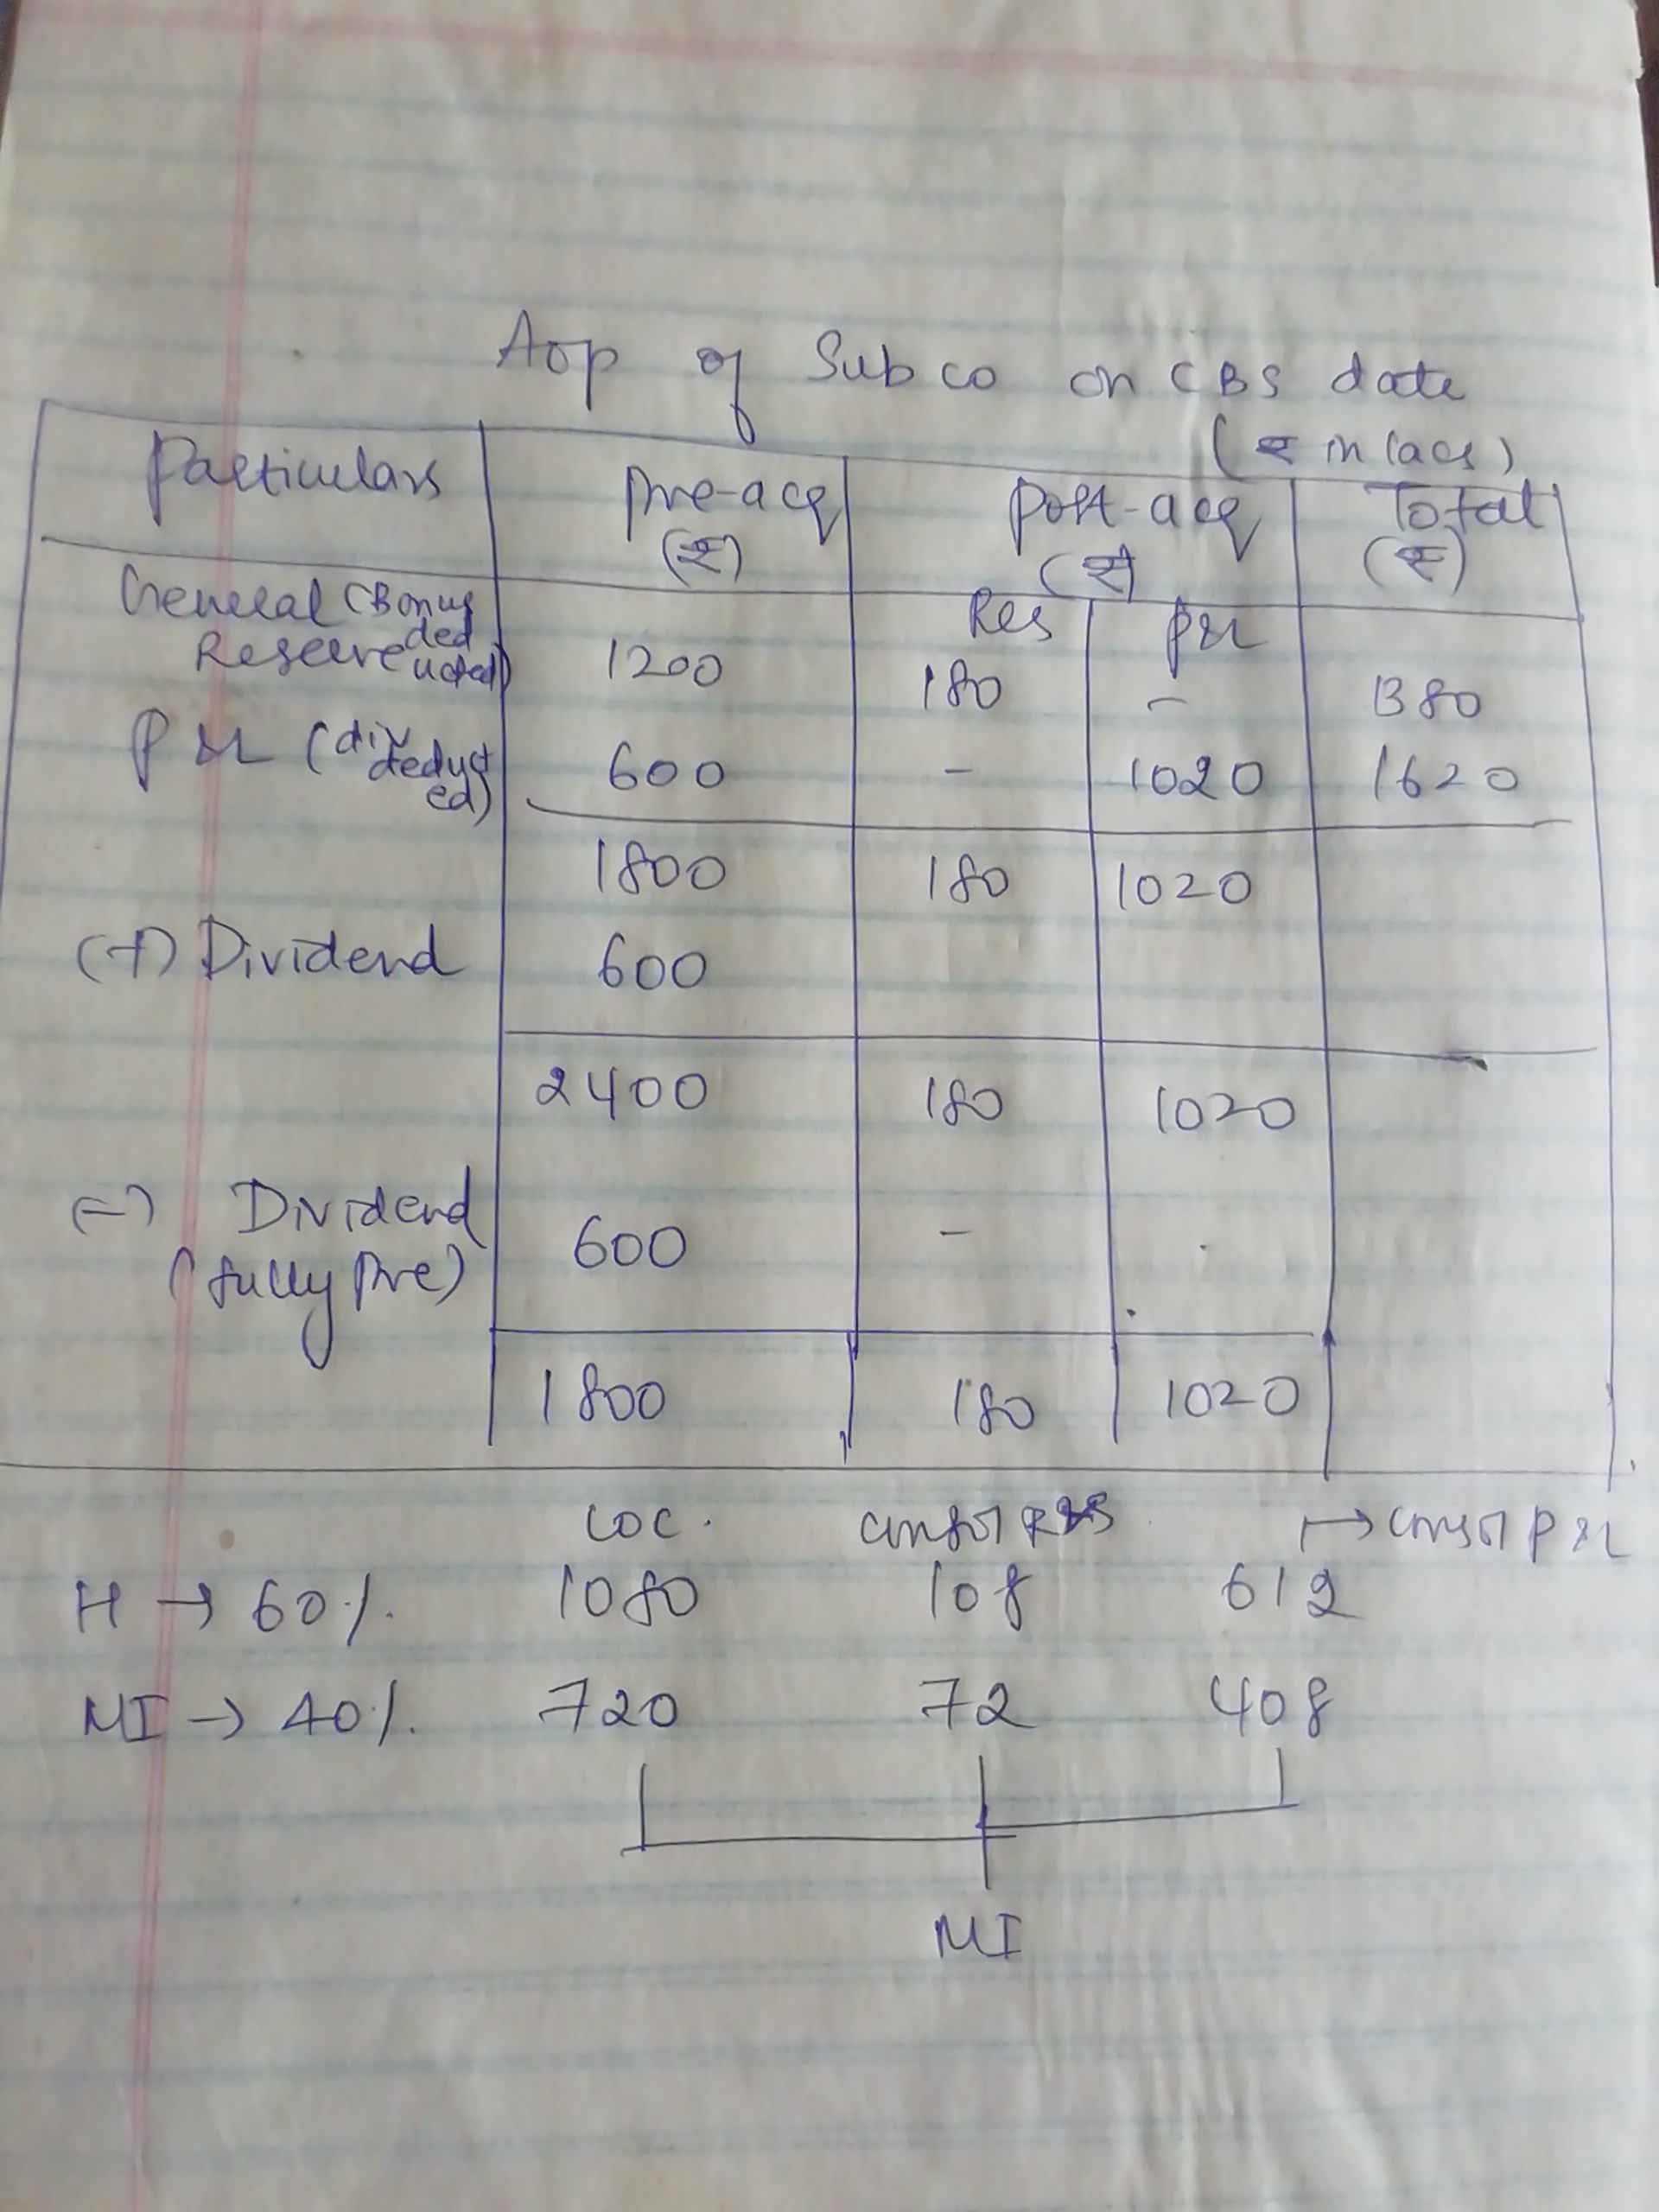 Aop of Sub co on CBS date
(₹ in lacs)
Particulars Pre-acq Post-acq Total
(₹) (₹) (₹)
Res P&L
General (Bonus
Reserve ded
ucted) 1200 180 - 1380
P&L (div
deduct
ed) 600 - 1020 1620
1800 180 1020
(+) Dividend 600
2400 180 1020
(-) Dividend
(fully Pre) 600 -
1800 180 1020
COC. consol Res → consol P&L
H → 60% 1080 108 612
MI → 40% 720 72 408
MI